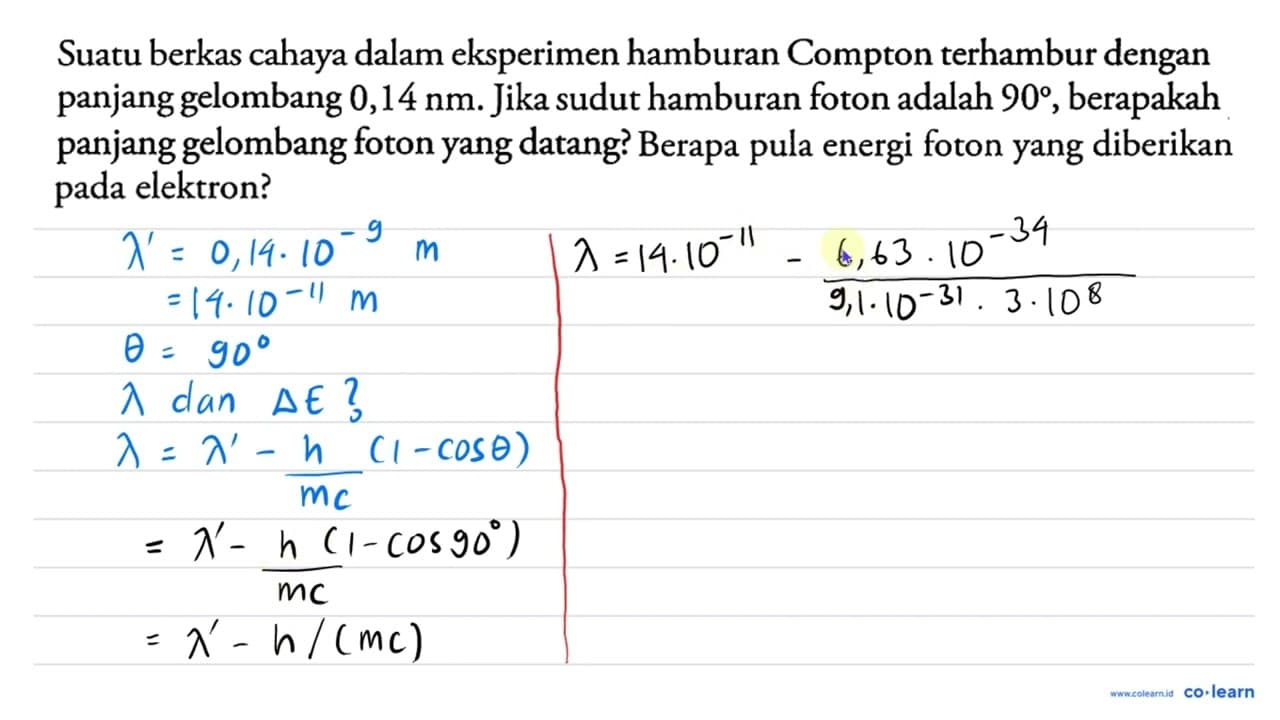 Suatu berkas cahaya dalam eksperimen hamburan Compton terhambur dengan
panjang gelombang 0,14 nm. Jika sudut hamburan foton adalah 90°, berapakah
panjang gelombang foton yang datang? Berapa pula energi foton yang diberikan
pada elektron?
λ' = 0,14 . 10^-9 m
= 14 . 10^-11 m
θ = 90°
λ dan ΔE ?
λ = λ' - h/mc (1 - cos θ)
= λ' - h/mc (1 - cos 90°)
= λ' - h/(mc)
λ = 14 . 10^-11 - 6,63 . 10^-34
9,1 . 10^-31 . 3 . 10^8
www.colearn.id co·learn